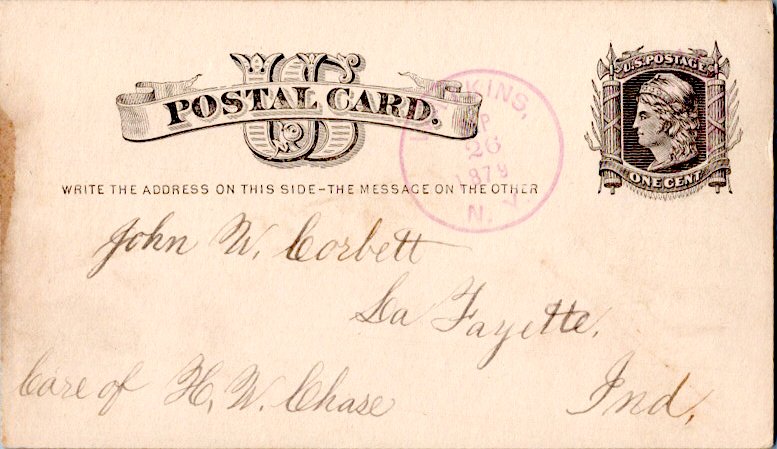 US
POSTAL CARD.
U.S. POSTAGE
ONE CENT
KINS,
26
1879
N. Y.
WRITE THE ADDRESS ON THIS SIDE–THE MESSAGE ON THE OTHER
John W. Corbett
La Fayette,
Care of H. W. Chase
Ind,